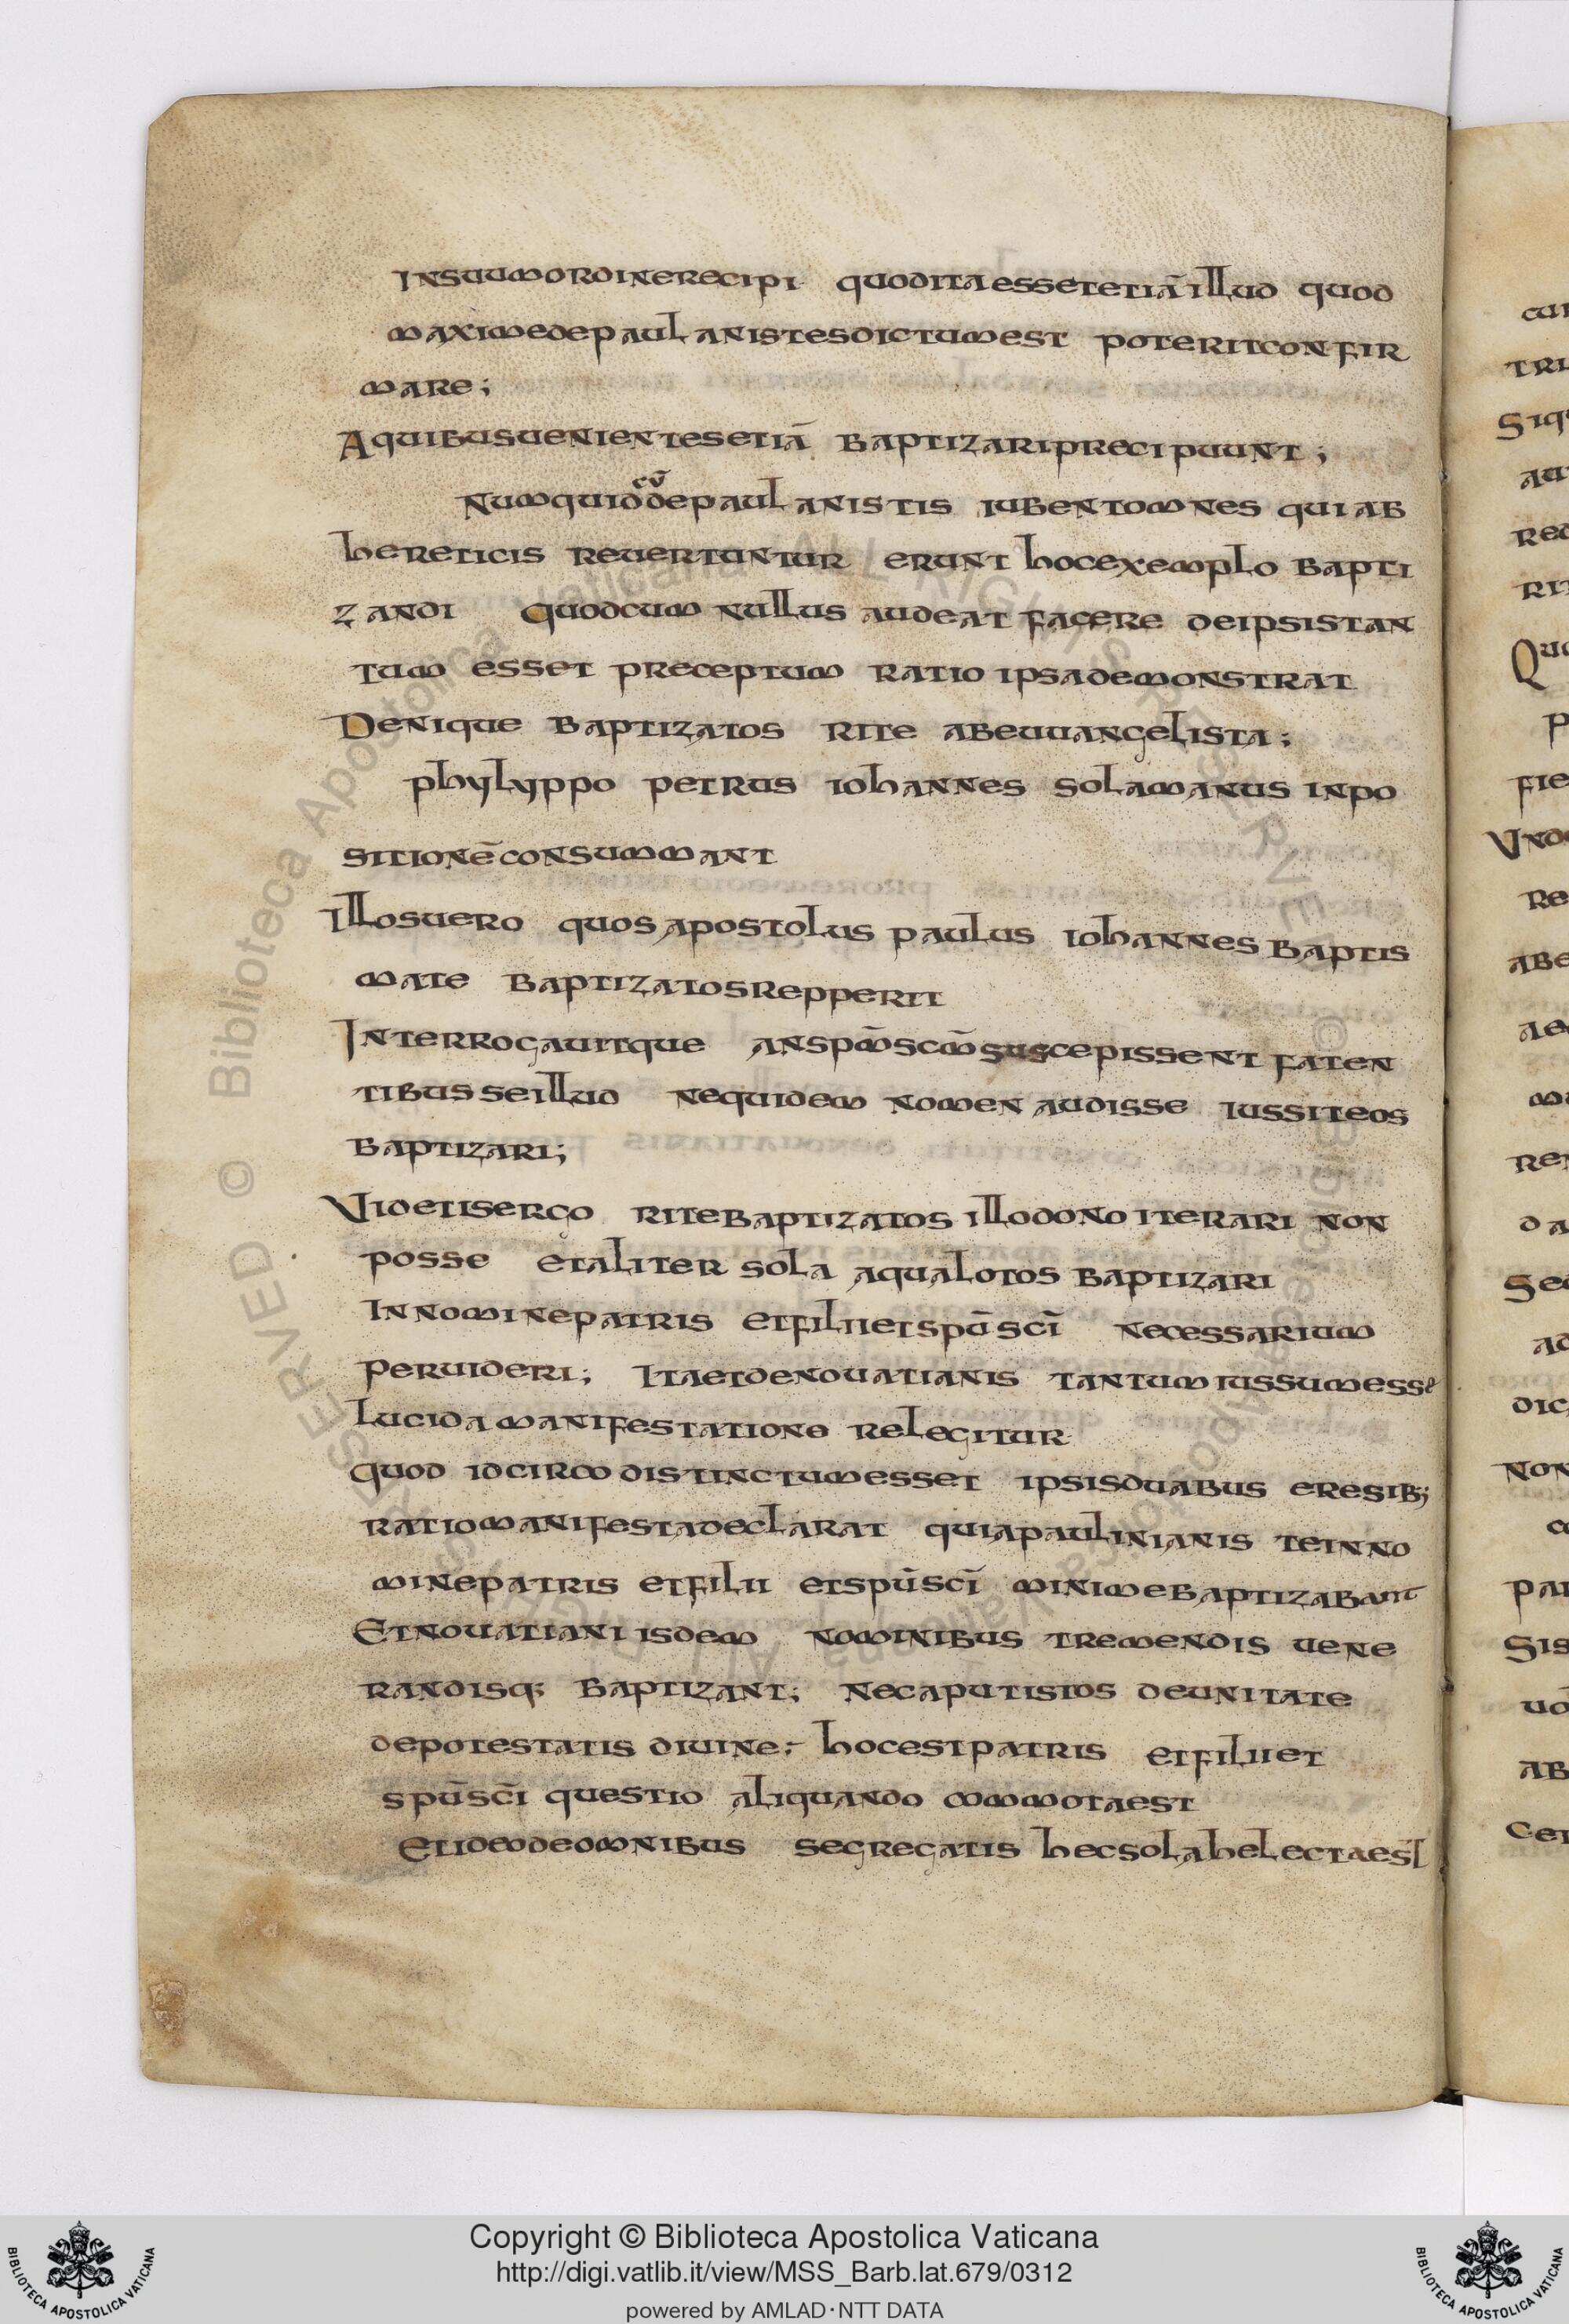 INSUUMORDINERECIPI QUODITAESSETETIĀILLUD QUOD
MAXIMEDEPAULANISTESDICTUMEST POTERITCONFIR
MARE;
AQUIBUSUENIENTESETIĀ BAPTIZARIPRECIPUUNT;
NUMQUIDDEPAULANISTIS IUBENTOMNES QUIAB
HERETICIS REUERTUNTUR ERUNT HOCEXEMPLO BAPTI
ZANDI QUODCUM NULLUS AUDEAT FACERE DEIPSISTAN
TUM ESSET PRECEPTUM RATIO IPSADEMONSTRAT
DENIQUE BAPTIZATOS RITE ABEUUANGELISTA;
PHYLYPPO PETRUS IOHANNES SOLAMANUS INPO
SITIONĒCONSUMMANT
ILLOSUERO QUOS APOSTOLUS PAULUS IOHANNES BAPTIS
MATE BAPTIZATOSREPPERIT
INTERROGAUITQUE ANSPM̄SCM̄SUSCEPISSENT FATEN
TIBUSSEILLUD NEQUIDEM NOMEN AUDISSE IUSSITEOS
BAPTIZARI;
VIDETISERGO RITEBAPTIZATOS ILLODONO ITERARI NON
POSSE ETALITER SOLA AQUALOTOS BAPTIZARI
INNOMINEPATRIS ETFILIIETSPŪSCĪ NECESSARIUM
PERUIDERI; ITAETDENOUATIANIS TANTUMIUSSUMESSE
LUCIDAMANIFESTATIONE RELEGITUR
QUOD IDCIRCO DISTINCTUMESSET IPSISDUABUS ERESIB;
RATIOMANIFESTADECLARAT QUIAPAULINIANIS TEINNO
MINEPATRIS ETFILII ETSPŪSCĪ MINIMEBAPTIZABANT
ETNOUATIANI ISDEM NOMINIBUS TREMENDIS UENE
RANDISQ; BAPTIZANT; NECAPUTISTOS DEUNITATE
DEPOTESTATIS DIUINE; HOCESTPATRIS ETFILIIET
SPŪSCĪ QUESTIO ALIQUANDO COMMOTAEST
ETIDEODEOMNIBUS SEGREGATIS HECSOLAHELECTAEST
Copyright © Biblioteca Apostolica Vaticana
http://digi.vatlib.it/view/MSS_Barb.lat.679/0312
powered by AMLAD·NTT DATA